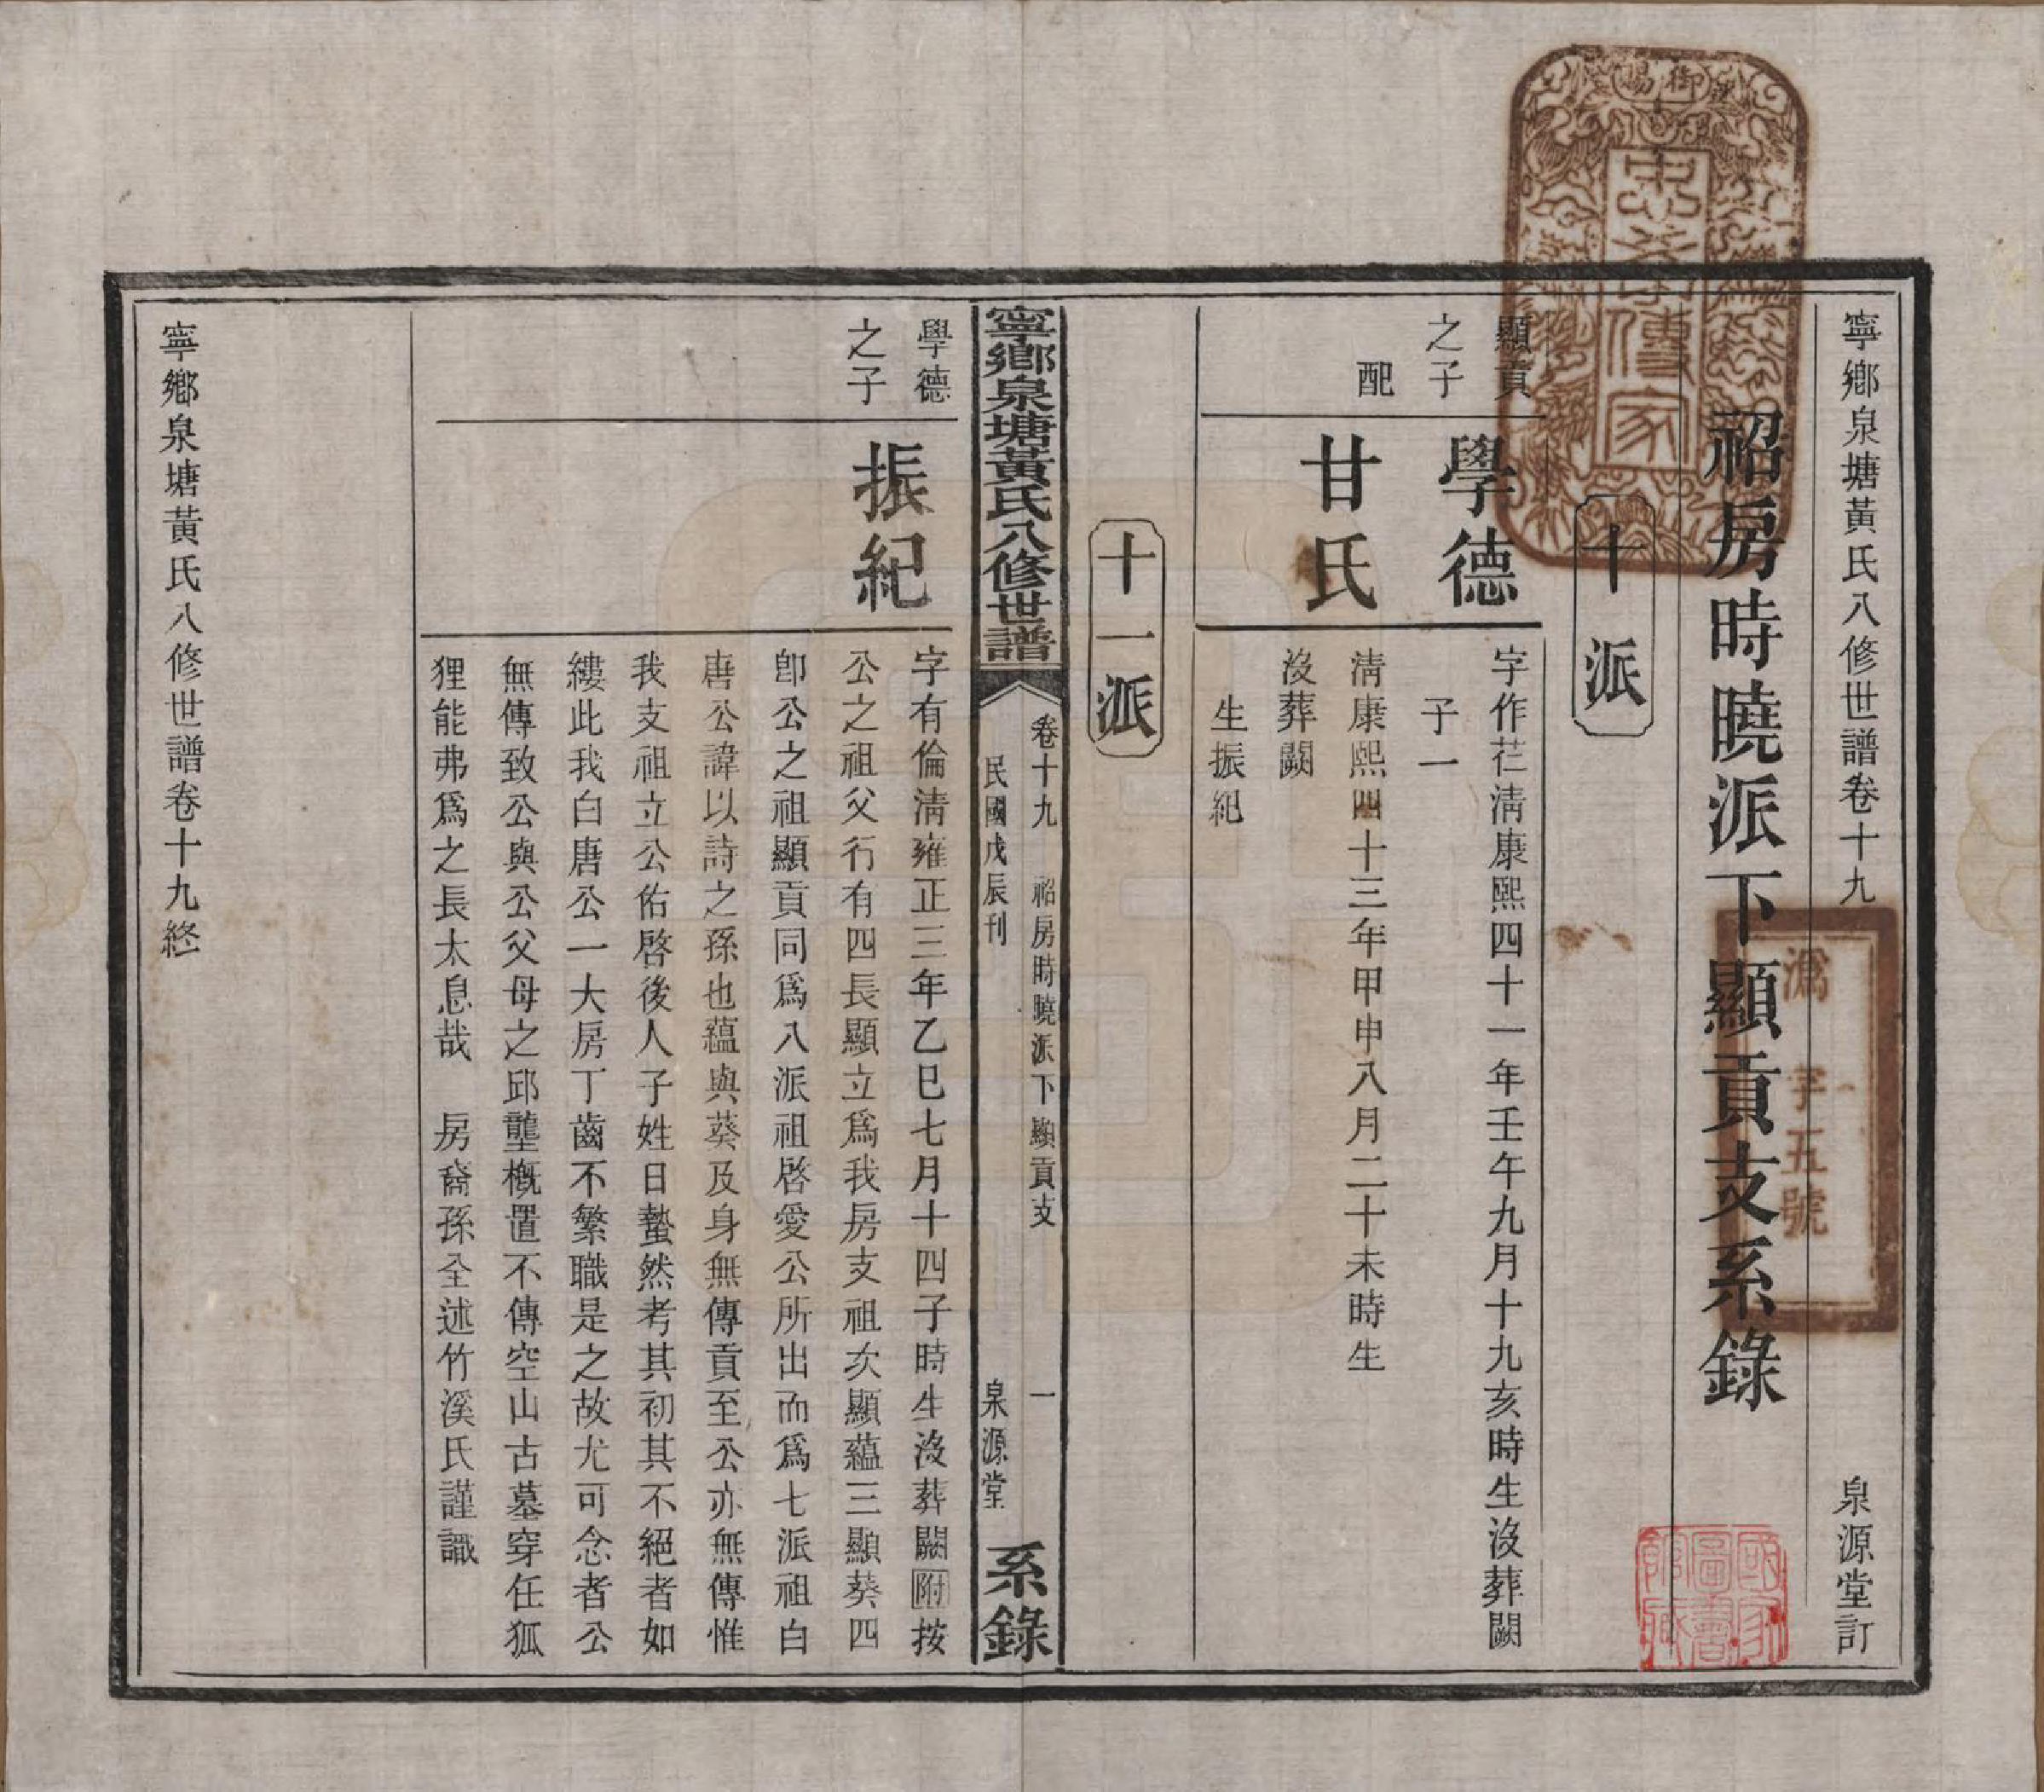 寧鄉泉塘黃氏八修世譜卷十九　泉源堂訂
祒房時曉派下顯貢支系錄
十派
顯貢之子
學德
字作茫淸康熙四十一年壬午九月十九亥時生沒葬闕
子一
配
甘氏
淸康熙四十三年甲申八月二十未時生
沒葬闕
生振紀
十一派
寧鄉泉塘黃氏八修世譜
卷十九　祒房時曉派下顯貢支　一
民國戊辰刊　泉源堂
系錄
學德之子
振紀
字有倫淸雍正三年乙巳七月十四子時生沒葬闕附按
公之祖父行有四長顯立爲我房支祖次顯蘊三顯葵四
卽公之祖顯貢同爲八派祖啓愛公所出而爲七派祖白
唐公諱以詩之孫也蘊與葵及身無傳貢至公亦無傳惟
我支祖立公佑啓後人子姓日蟄然考其初其不絕者如
縷此我白唐公一大房丁齒不繁職是之故尤可念者公
無傳致公與公父母之邱壟槪置不傳空山古墓穿任狐
狸能弗爲之長太息哉　房裔孫全述竹溪氏謹識
寧鄉泉塘黃氏八修世譜卷十九終
御賜
忠孝傳家
溈字五號
國家圖書館藏